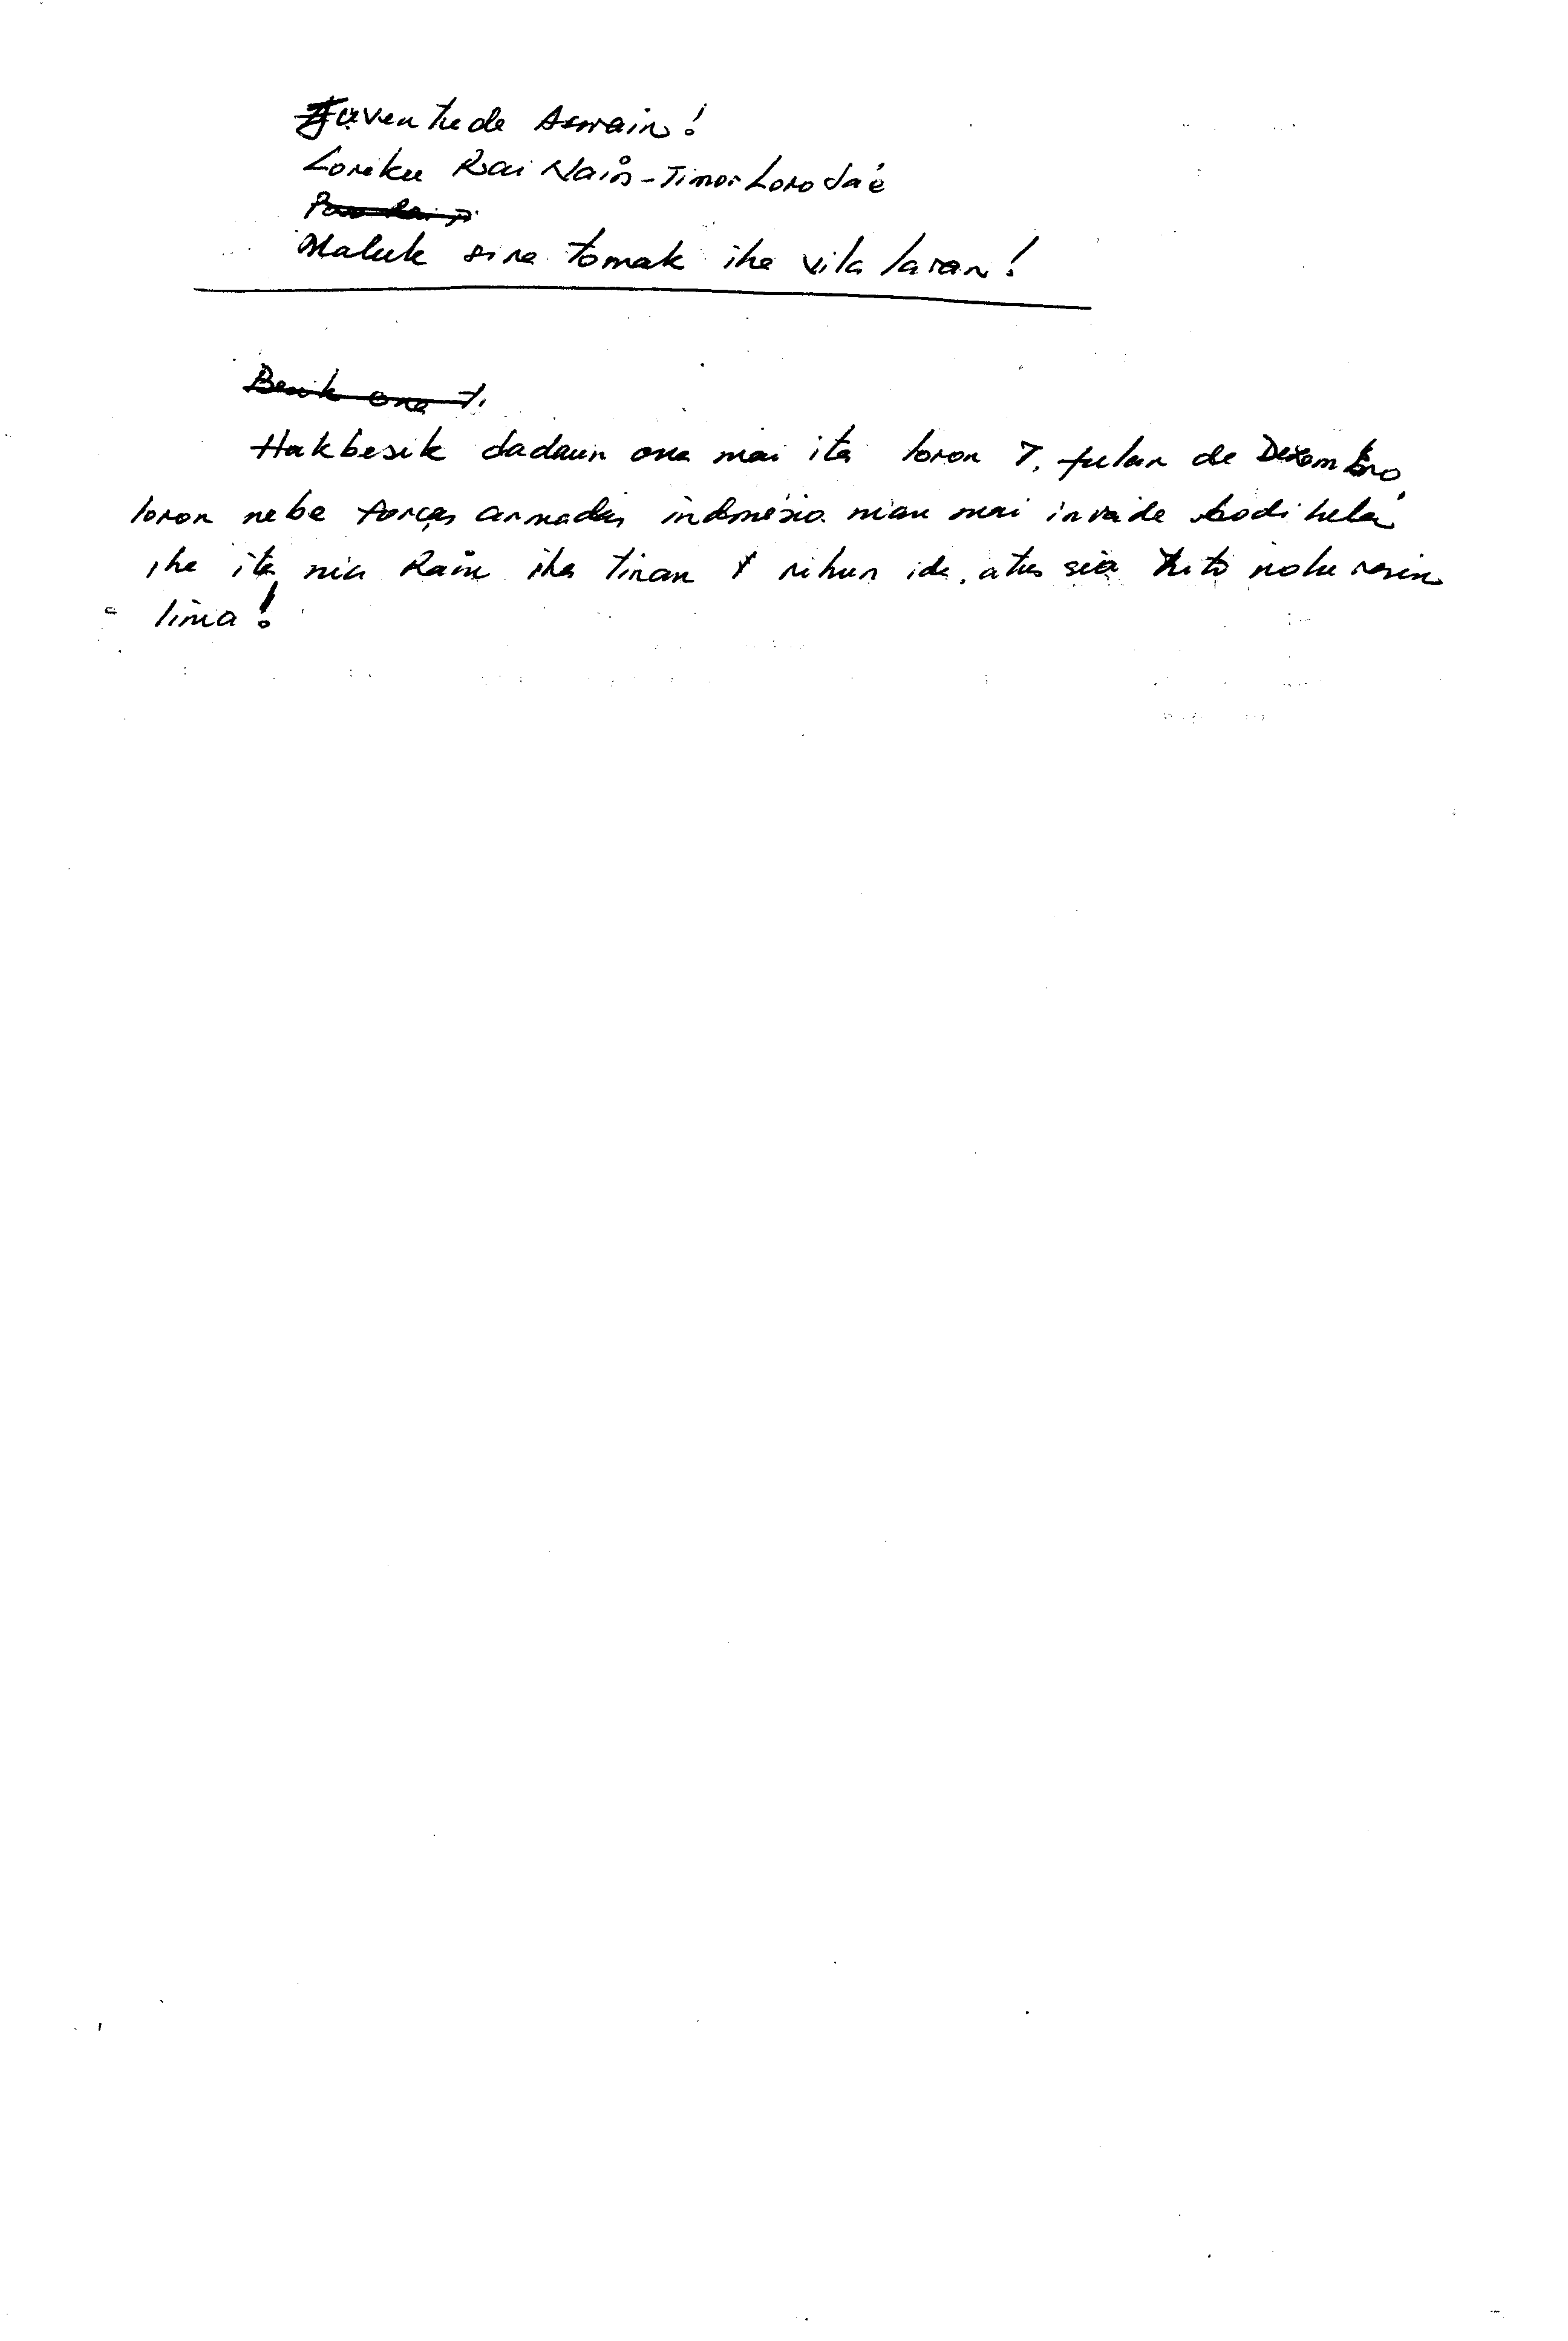 Juventude Aswain!
Loriku Rai Nain - Timor Loro Sa'e
Maluk sira tomak iha vila laran!
Hakbesik dadaun ona mai ita loron 7, fulan de Dezembro
loron nebe forças armadas indonésia nian mai invade hodi hela
iha ita nia Rain iha tinan rihun ida, atus sia hito nolu resin
lima!